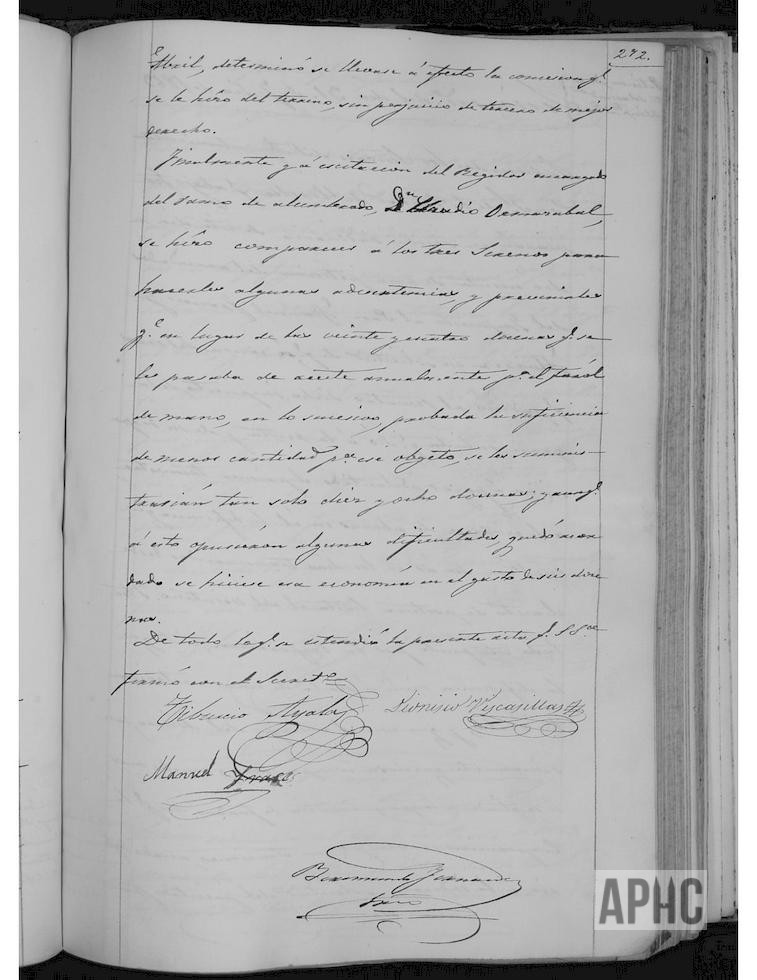 242.
Abril, determinó se llevase á efecto la concesion q.e
se le hizo del terreno, sin perjuicio de tercero de mejor
derecho.
Finalmente y á escitacion del Regidor encargado
del ramo de alumbrado, D.n Eladio Demarabal,
se hizo comparecer á los tres Serenos para
hacerles algunas advertencias, y prevenirles
q.e en lugar de las veinte y cuatro docenas q.e se
les pasaba de aceite anualmente p.a el faról
de mano, en lo sucesivo, probada la suficiencia
de menos cantidad p.a ese objeto, se les suminis-
trarían tan solo diez y ocho docenas; y aunq.e
á esto opusieron algunas dificultades, quedó acor
dado se hiciese esa economía en el gasto de seis doce
nas.
De todo lo q.e se estendió la presente acta q.e S. S.
firmó con el Secret.o
Tiburcio Ayala
Dionisio Viscasillas
Manuel
APHC